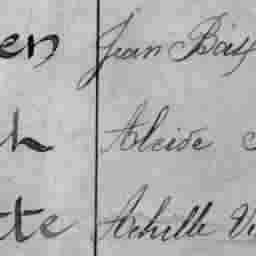 en Jean Bais
h Alcide
tte Achille Vi